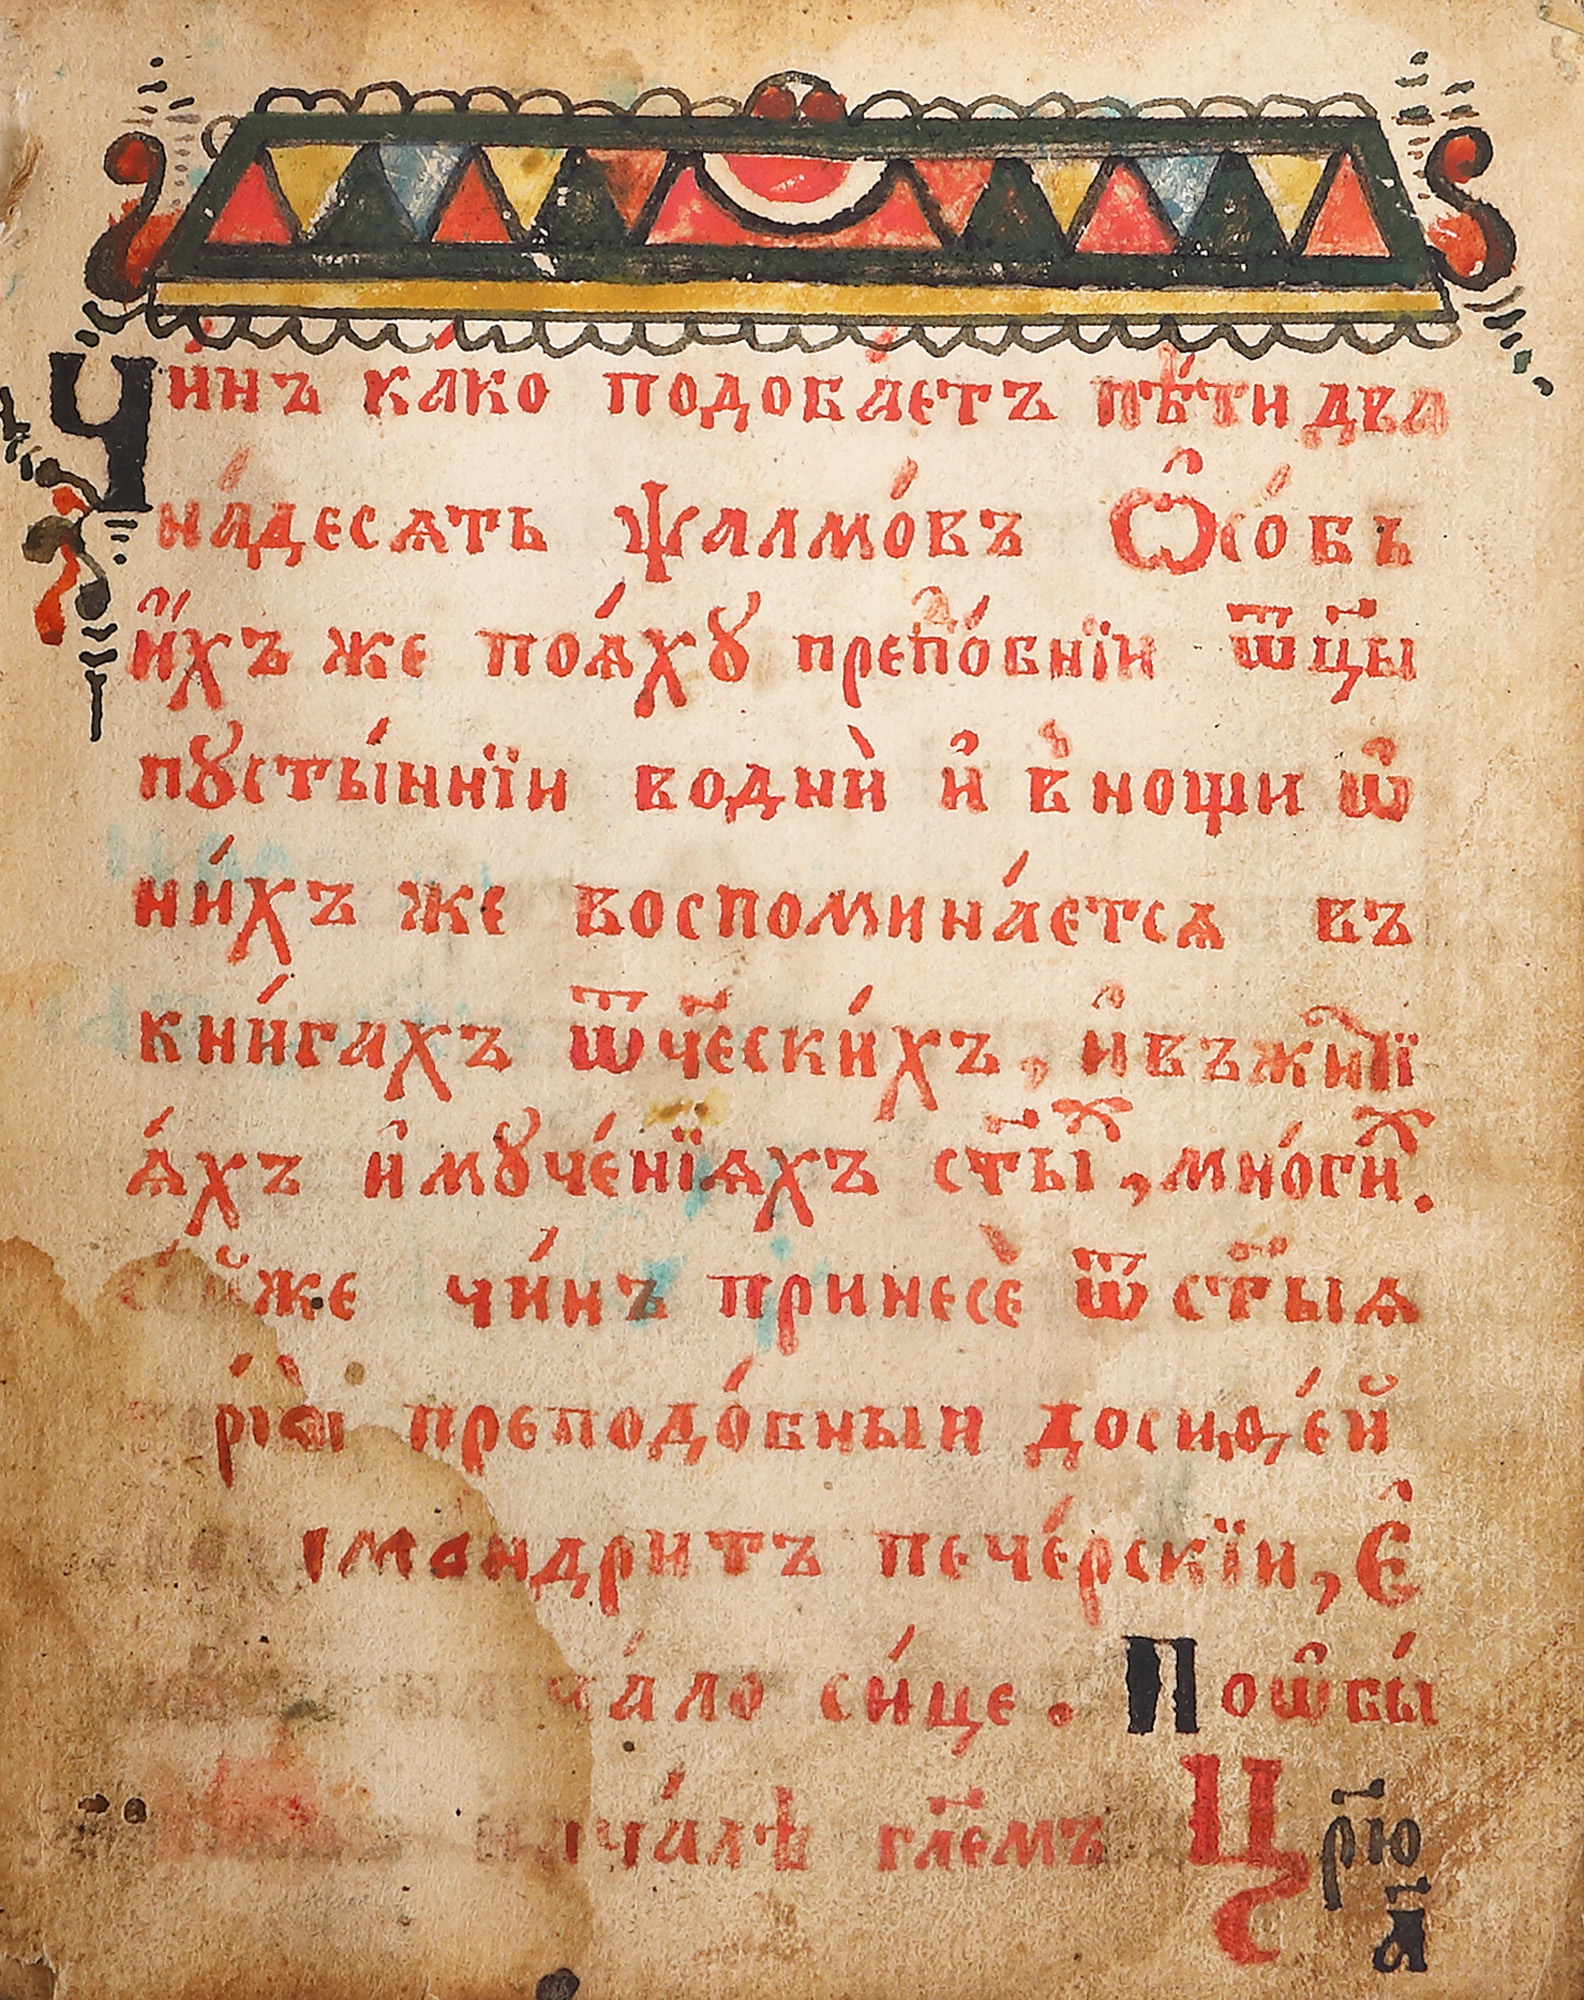 Чи́нъ ка́ко подоба́етъ пѣ́ти два
на́десѧть ѱалмо́въ Ѽсо́бь
и҆́хъ же поѧ́хꙋ препⷣо́бнїи ѿц҃ы
пꙋсты́ннїи воднѝ и҆ в̾нощи ѡ҆
ни́хъ же воспомина́етсѧ въ
кни́гахъ ѿч҃ески́хъ, и҆ въжи́тї
ѧ́хъ и҆ мꙋче́нїѧхъ ст҃ыⷯ, мно́гиⷯ.
же чи́нъ принесѐ ѿ ст҃ыѧ
преподо́бныи досиѳе́й
имандритъ пече́рскїи, Є҆
ча́ло си́це. Поѡ҆бы́
нача́лѣ гл҃емъ Цр҃ю